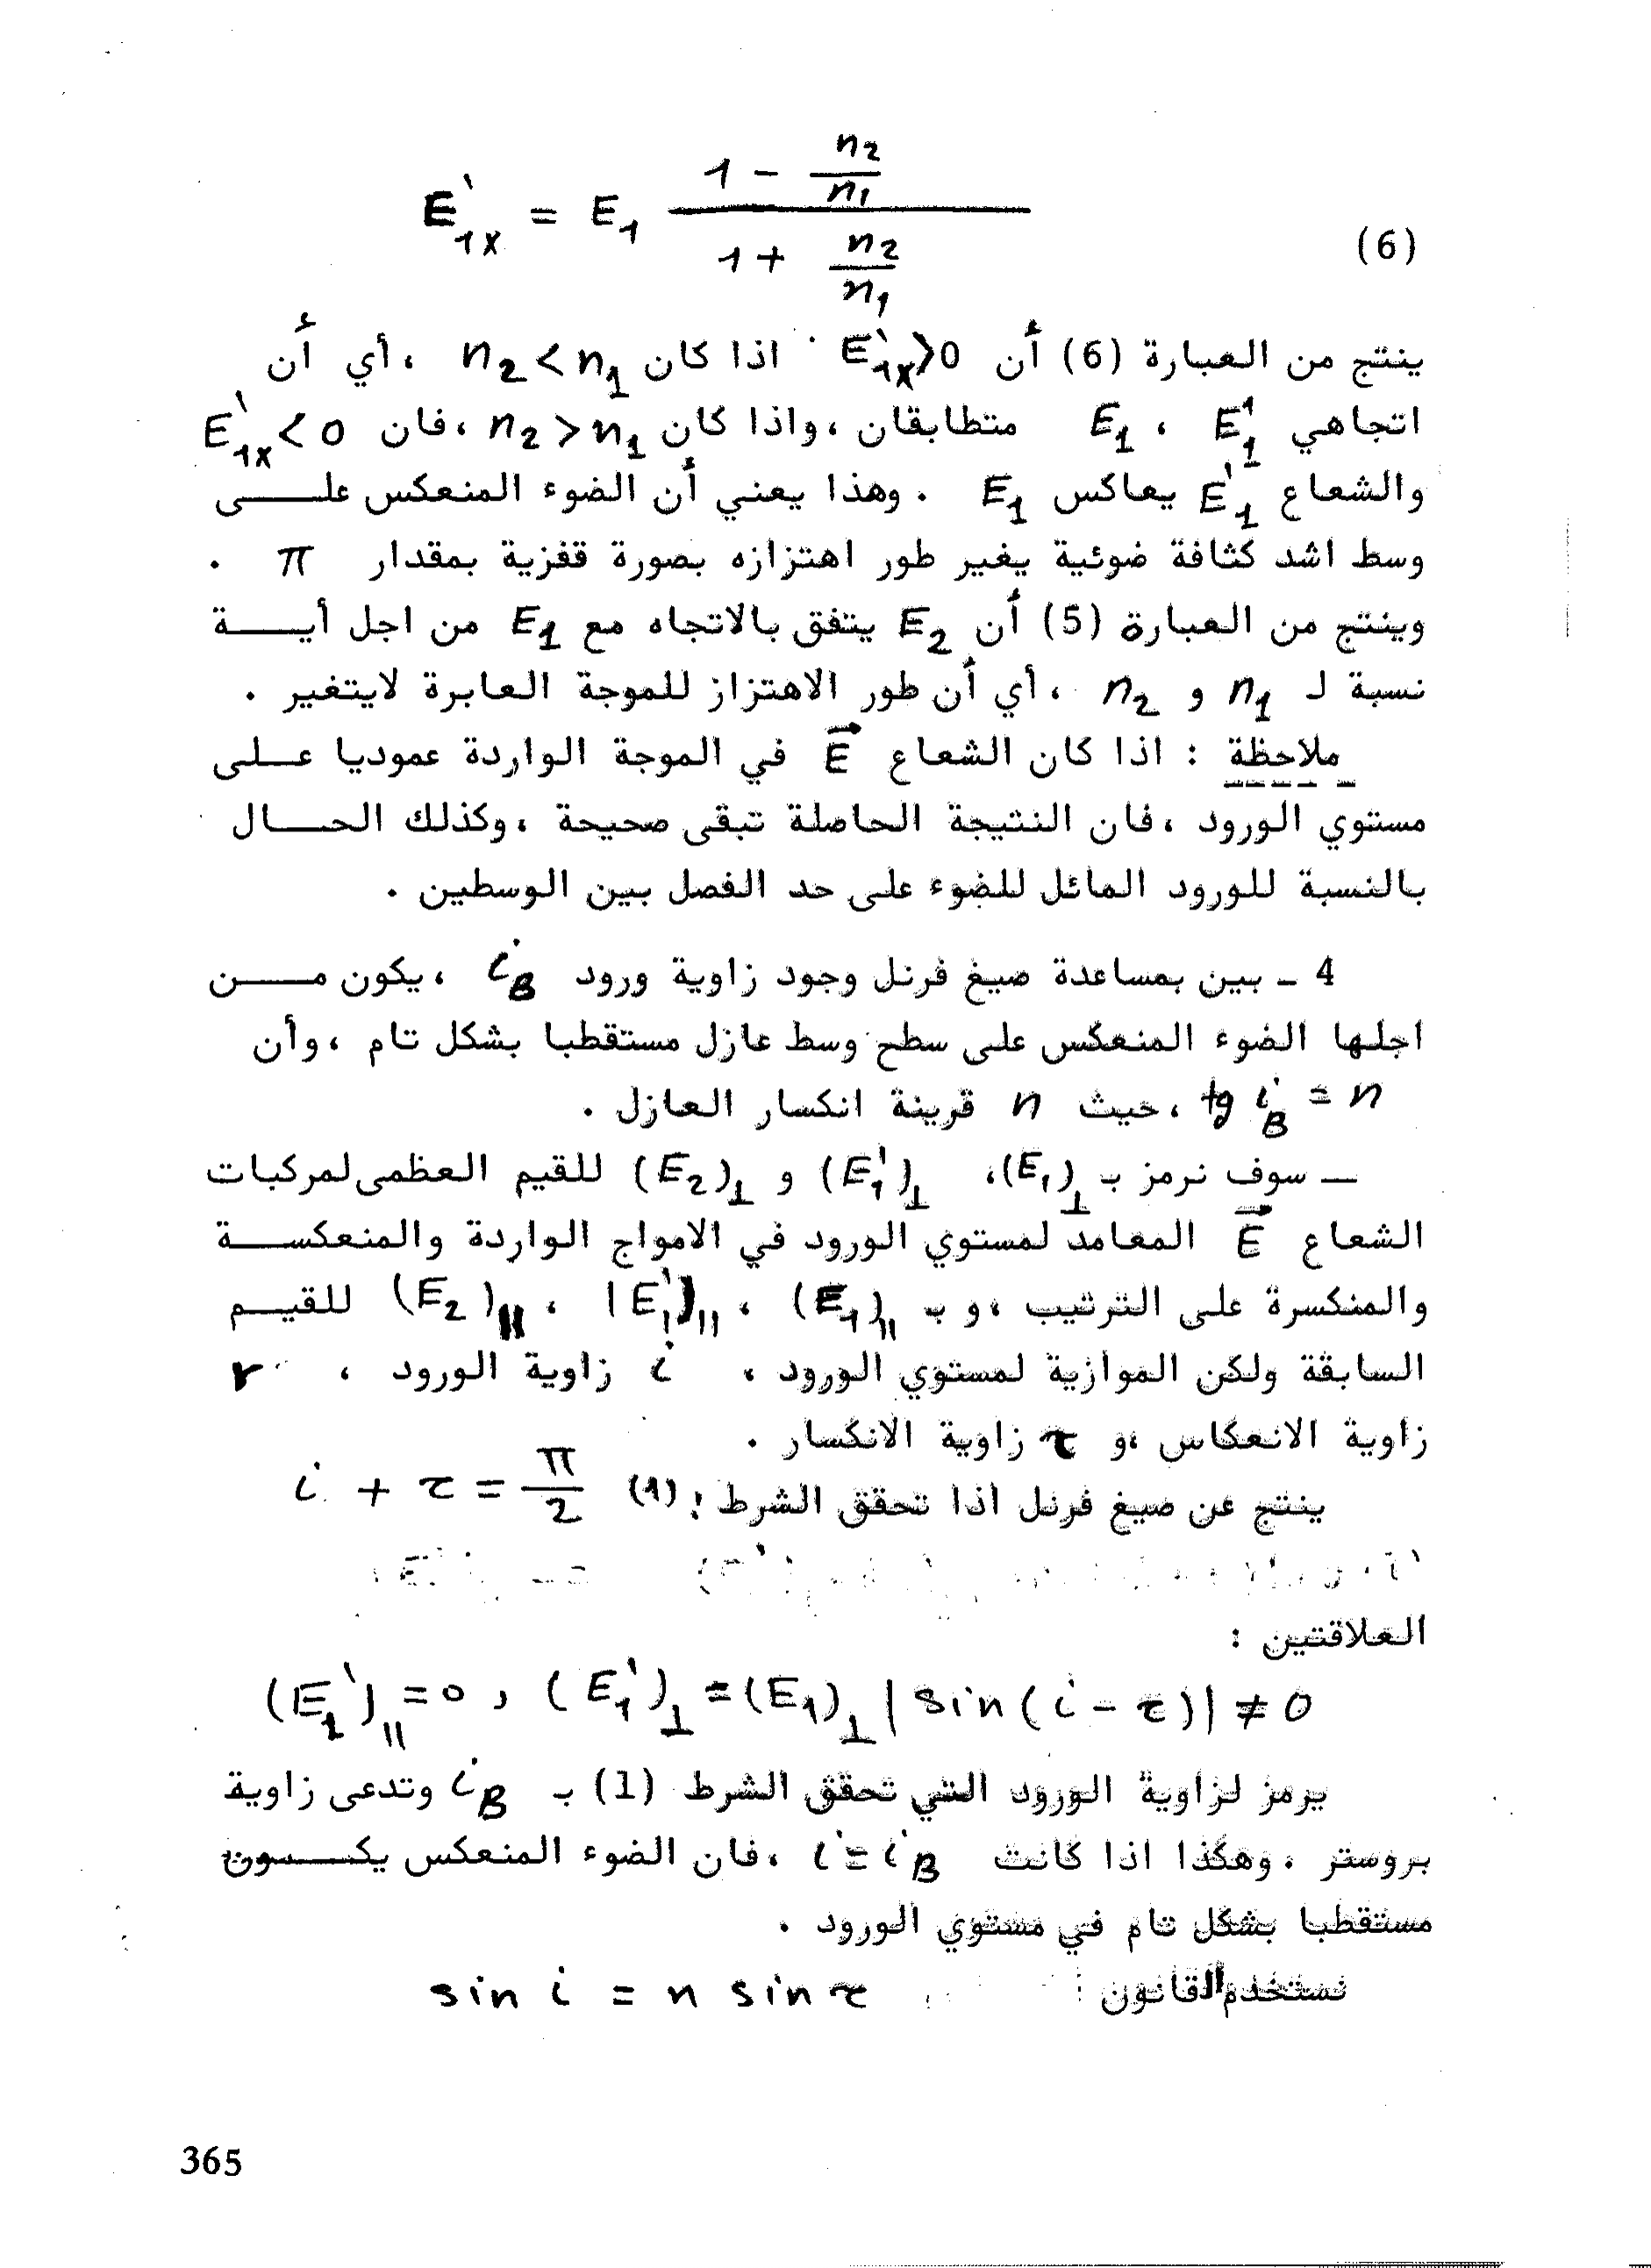 E'₁ₓ = E₁ (1 - n₂/n₁) / (1 + n₂/n₁) (6)
ينتج من العبارة (6) أن E'₁ₓ>0 اذا كان n₂ < n₁ ، أي أن
اتجاهي E'₁ ، E₁ متطابقان ، واذا كان n₂ > n₁ ، فان E'₁ₓ < 0
والشعاع E'₁ يعاكس E₁ . وهذا يعني أن الضوء المنعكس على
وسط اشد كثافة ضوئية يغير طور اهتزازه بصورة قفزية بمقدار π .
وينتج من العبارة (5) أن E₂ يتفق بالاتجاه مع E₁ من اجل أية
نسبة لـ n₁ و n₂ ، أي أن طور الاهتزاز للموجة العابرة لايتغير .
ملاحظة : اذا كان الشعاع E⃗ في الموجة الواردة عموديا على
مستوي الورود ، فان النتيجة الحاصلة تبقى صحيحة ، وكذلك الحال
بالنسبة للورود المائل للضوء على حد الفصل بين الوسطين .
4 - بين بمساعدة صيغ فرنل وجود زاوية ورود i_B ، يكون من
اجلها الضوء المنعكس على سطح وسط عازل مستقطبا بشكل تام ، وأن
tg i_B = n ، حيث n قرينة انكسار العازل .
— سوف نرمز بـ (E₁)⊥ ، (E'₁)⊥ و (E₂)⊥ للقيم العظمى لمركبات
الشعاع E⃗ المعامد لمستوي الورود في الامواج الواردة والمنعكسة
والمنكسرة على الترتيب ، و بـ (E₁)∥ ، (E'₁)∥ ، (E₂)∥ للقيم
السابقة ولكن الموازية لمستوي الورود ، i زاوية الورود ، r
زاوية الانعكاس ، و τ زاوية الانكسار .
ينتج عن صيغ فرنل اذا تحقق الشرط : (1) i + τ = π/2
العلاقتين :
(E'₁)∥ = 0 , (E'₁)⊥ = (E₁)⊥ |sin(i - τ)| ≠ 0
يرمز لزاوية الورود التي تحقق الشرط (1) بـ i_B وتدعى زاوية
بروستر ، وهكذا اذا كانت i = i_B ، فان الضوء المنعكس يكون
مستقطبا بشكل تام في مستوي الورود .
نستخدم القانون : sin i = n sin τ
365